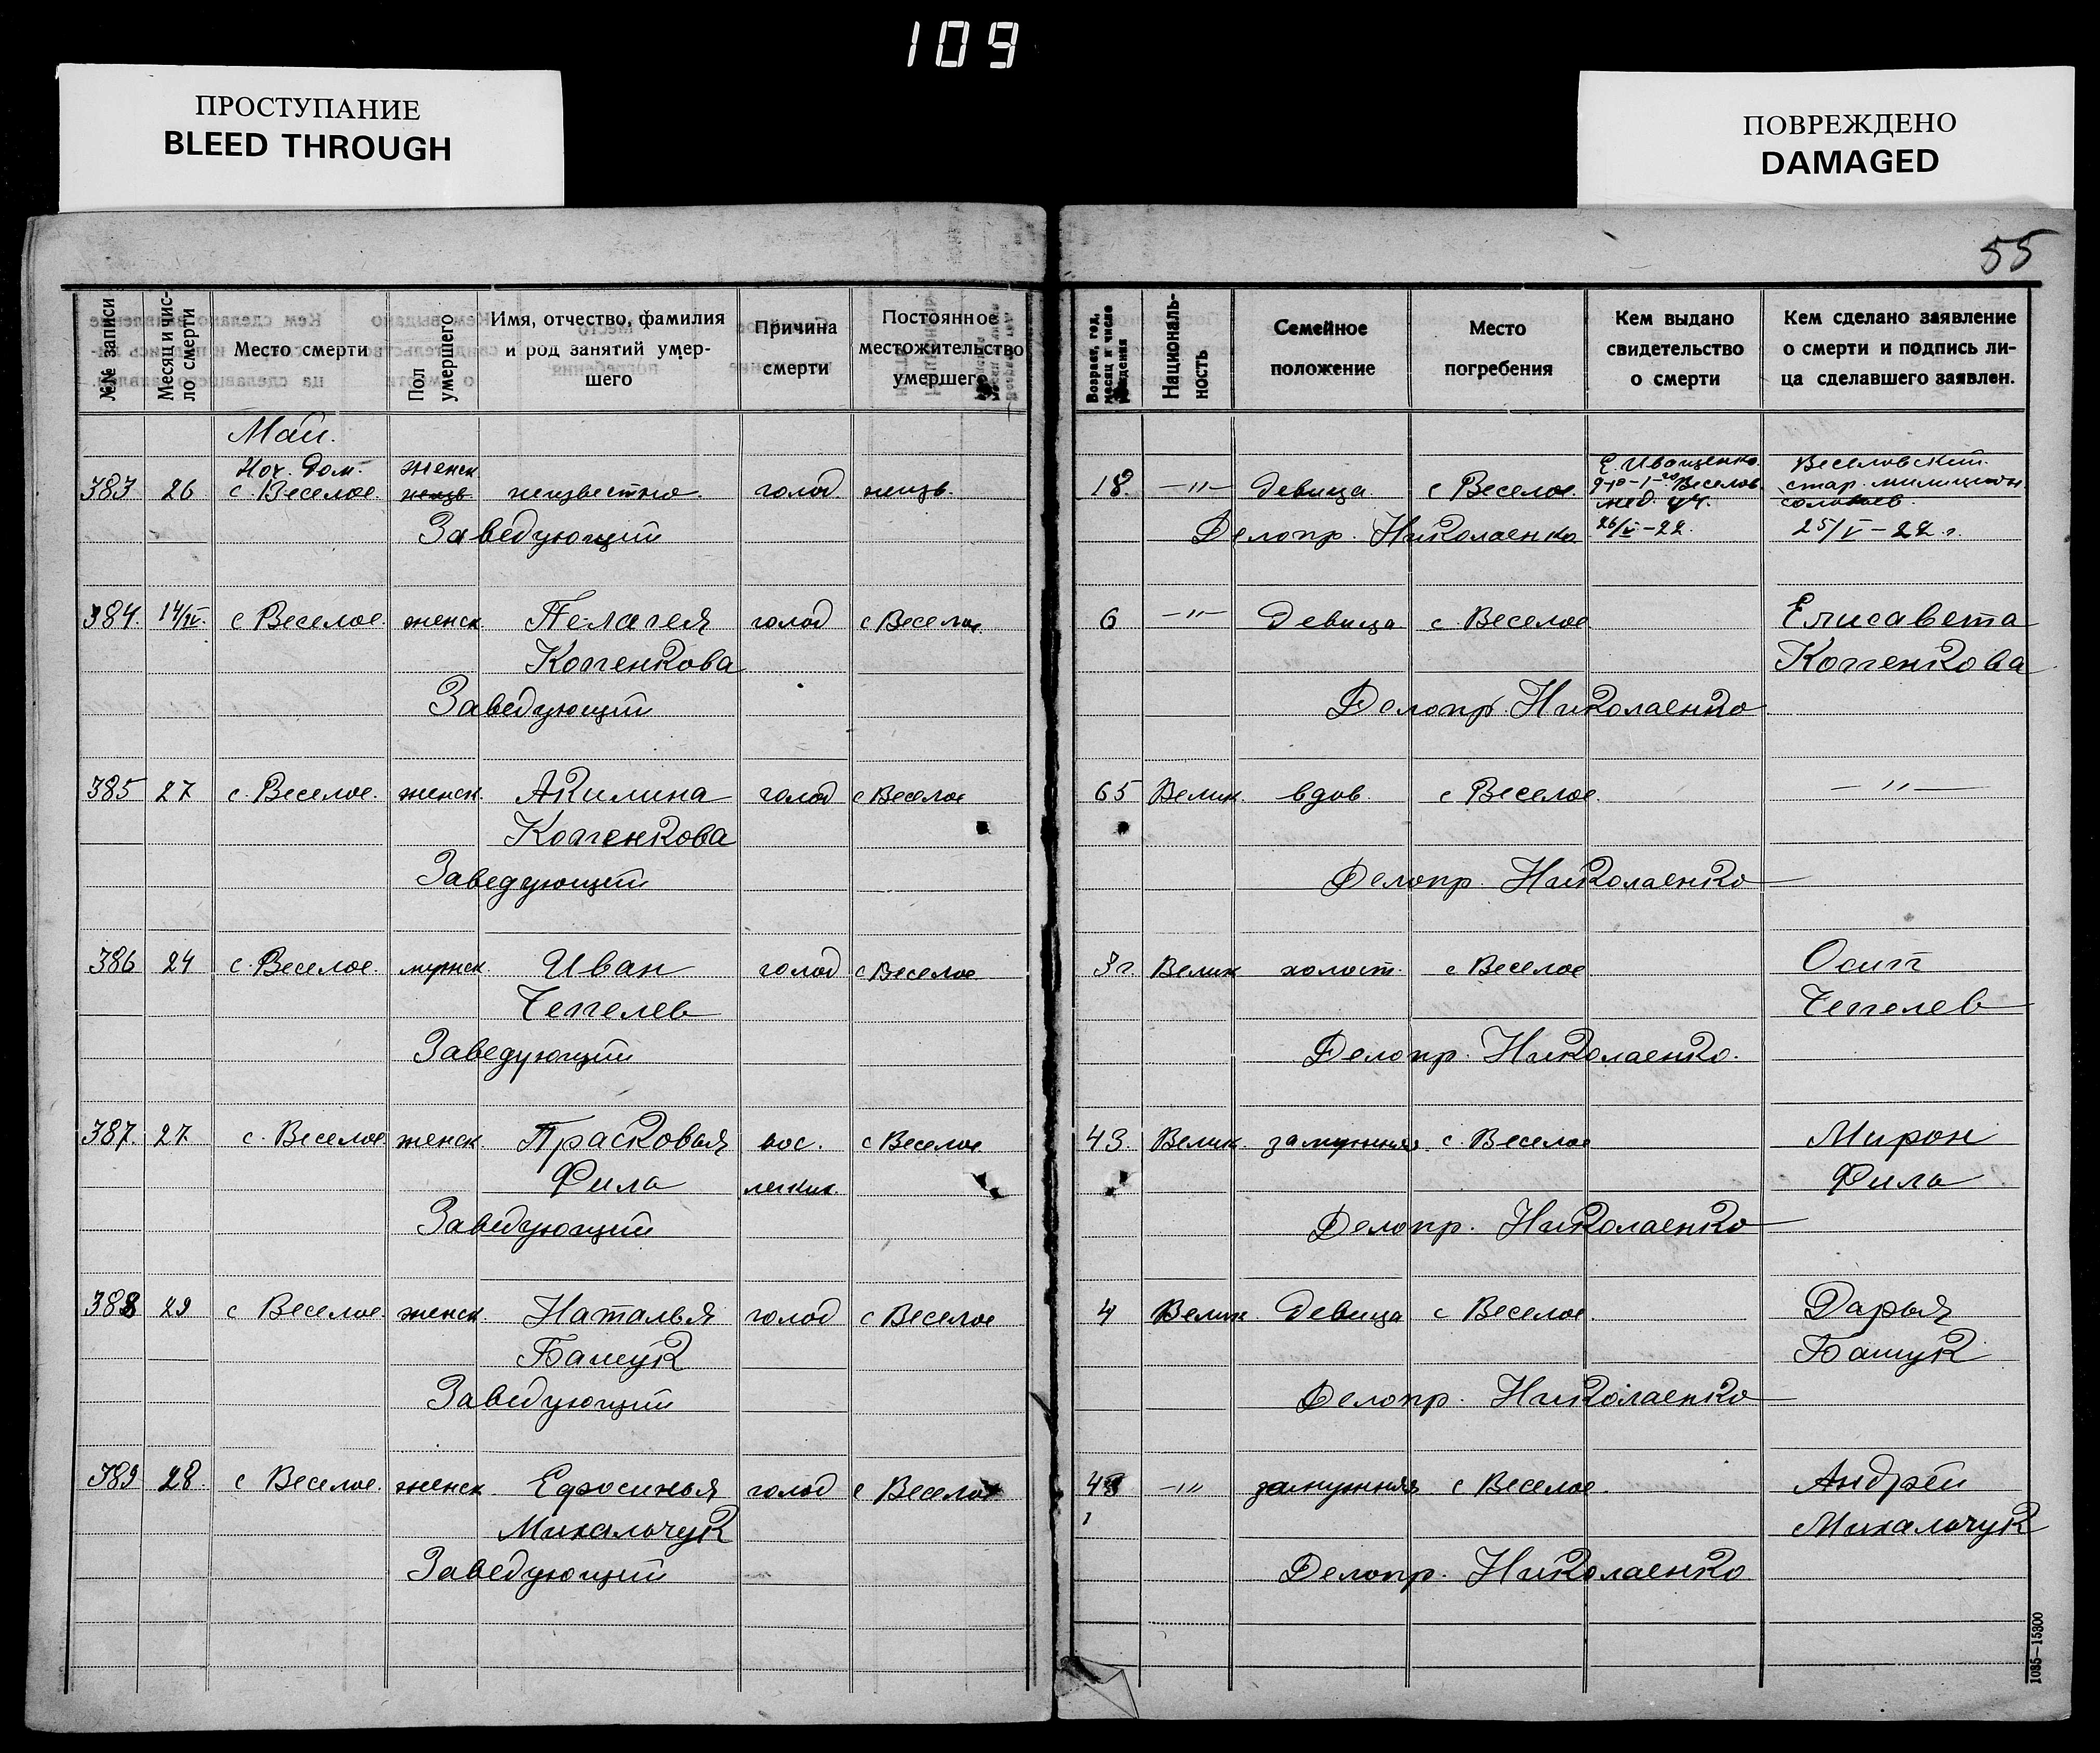 109
ПРОСТУПАНИЕ
BLEED THROUGH
ПОВРЕЖДЕНО
DAMAGED
55
№№ записи
Месяц и чис-
ло смерти
Место смерти
Пол
умершего
Имя, отчество, фамилия
и род занятий умер-
шего
Причина
смерти
Постоянное
местожительство
умершего
Возраст, год,
месяц и число
рождения
Националь-
ность
Семейное
положение
Место
погребения
Кем выдано
свидетельство
о смерти
Кем сделано заявление
о смерти и подпись ли-
ца сделавшего заявлен.
Май.
Ноч. дом. женск Е. Иващенко Веселовский
383 26 с. Веселое. неизвестно. голод неизв. 18. —"— девица с Веселое. Веселов. стар. милиции
мед. уч.
Заведующий Делопр. Николаенко 26/V–22. 25/V–22 г.
384. 14/IV. с Веселое. женск Пелагея голод с Веселое. 6 —"— девица с Веселое Елисавета
Коппенкова Коппенкова
Заведующий Делопр. Николаенко
385 27 с. Веселое. женск. Акилина голод с Веселое 65 Велик. вдов. с Веселое. —"—
Коппенкова
Заведующий Делопр. Николаенко
386 24 с. Веселое. мужск. Иван голод с Веселое 3г. Велик холост. с Веселое Осип
Чеппелев Чеппелев
Заведующий Делопр. Николаенко.
387. 27 с. Веселое женск. Прасковья вос. с Веселое 43. Велик. замужняя. с. Веселое Мирон
Фила легких. Фила
Заведующий Делопр. Николаенко
388 29 с Веселое. женск. Наталья голод с Веселое 4 Велик. девица с Веселое. Дарья
Башук Башук
Заведующий Делопр. Николаенко
389 28. с Веселое. женск. Ефросинья голод с Веселое —"— замужняя с Веселое. Андрей
Михальчук Михальчук
Заведующий Делопр. Николаенко
1035—15300